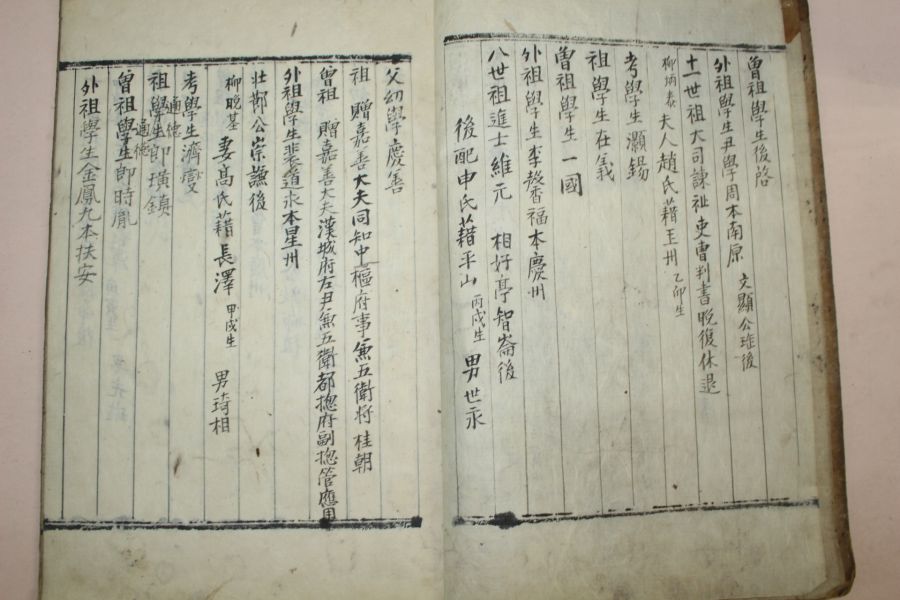 曾祖學生後啓
外祖學生尹學周本南原 文顯公瑋後
十一世祖大司諫祉吏曹判書晚復休退
柳炳泰 夫人趙氏籍玉州 乙卯生
考學生灝錫
祖學生在義
曾祖學生一國
外祖學生李馨福本慶州
八世祖進士維元 相好亭智崙後
後配申氏籍平山 丙戌生 男世永
父幼學慶善
祖 贈嘉善大夫同知中樞府事兼五衛將桂朝
曾祖 贈嘉善大夫漢城府左尹兼五衛都摠府副摠管應周
外祖學生裴道永本星州
壯鄭公崇謙後
柳晚基 妻高氏籍長澤 甲戌生 男琦相
考學生濟燮
祖學生通德郎璜鎮
曾祖學生通德郎時胤
外祖學生金鳳九本扶安